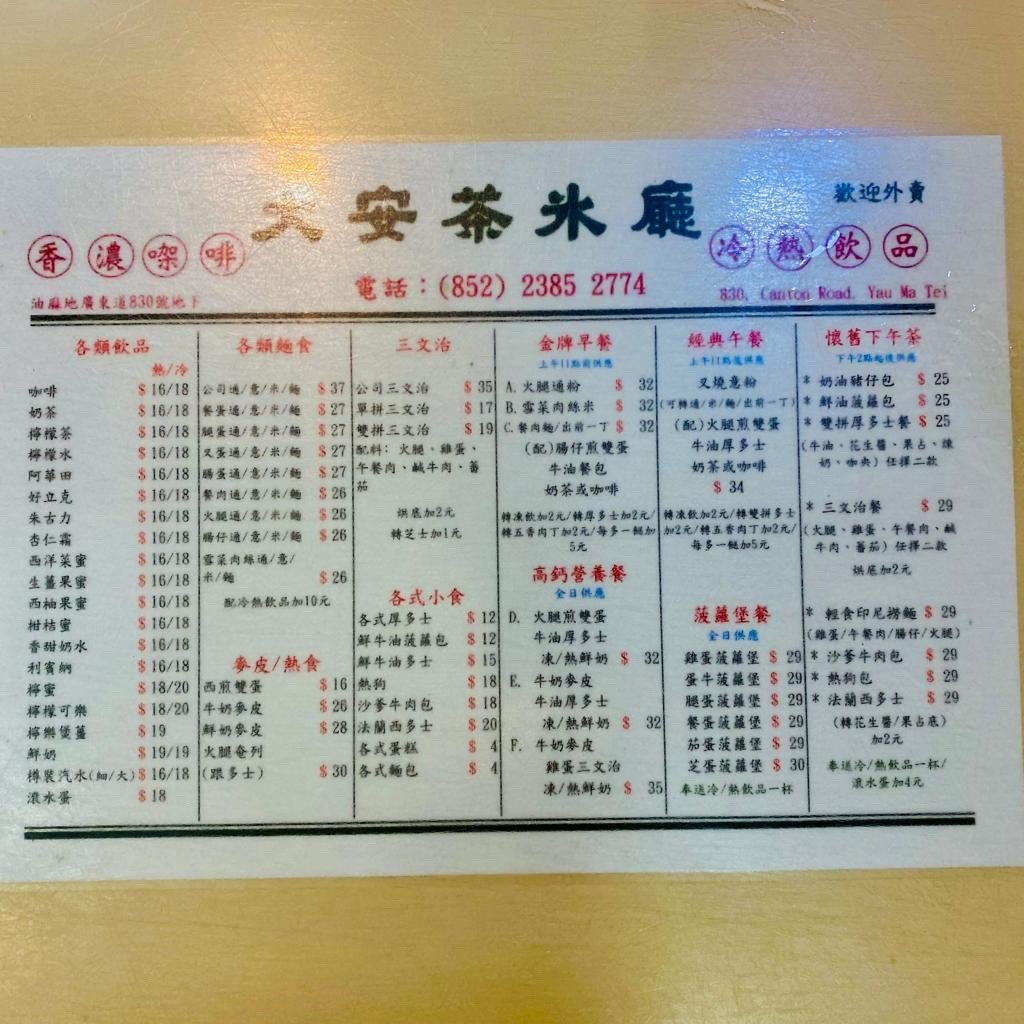 大安茶氷廳
歡迎外賣
香濃㗎啡
冷熱飲品
電話：(852) 2385 2774
油麻地廣東道830號地下
830, Canton Road, Yau Ma Tei
各類飲品
熱/冷
咖啡 $16/18
奶茶 $16/18
檸檬茶 $16/18
檸檬水 $16/18
阿華田 $16/18
好立克 $16/18
朱古力 $16/18
杏仁霜 $16/18
西洋菜蜜 $16/18
生薑果蜜 $16/18
西柚果蜜 $16/18
柑桔蜜 $16/18
香甜奶水 $16/18
利賓納 $16/18
檸蜜 $18/20
檸檬可樂 $18/20
檸樂煲薑 $19
鮮奶 $19/19
樽裝汽水(細/大) $16/18
滾水蛋 $18
各類麵食
公司通/意/米/麵 $37
餐蛋通/意/米/麵 $27
腿蛋通/意/米/麵 $27
叉蛋通/意/米/麵 $27
腸蛋通/意/米/麵 $27
餐肉通/意/米/麵 $26
火腿通/意/米/麵 $26
腸仔通/意/米/麵 $26
雪菜肉絲通/意/
米/麵 $26
配冷熱飲品加10元
麥皮/熱食
西煎雙蛋 $16
牛奶麥皮 $26
鮮奶麥皮 $28
火腿奄列
(跟多士) $30
三文治
公司三文治 $35
單拼三文治 $17
雙拼三文治 $19
配料：火腿、雞蛋、
午餐肉、鹹牛肉、蕃
茄
烘底加2元
轉芝士加1元
各式小食
各式厚多士 $12
鮮牛油菠蘿包 $12
鮮牛油多士 $15
熱狗 $18
沙爹牛肉包 $18
法蘭西多士 $20
各式蛋糕 $4
各式麵包 $4
金牌早餐
上午11點前供應
A.火腿通粉 $32
B.雪菜肉絲米 $32
C.餐肉麵/出前一丁 $32
(配)腸仔煎雙蛋
牛油餐包
奶茶或咖啡
轉凍飲加2元/轉厚多士加2元/
轉五香肉丁加2元/每多一餸加
5元
高鈣營養餐
全日供應
D. 火腿煎雙蛋
牛油厚多士
凍/熱鮮奶 $32
E. 牛奶麥皮
牛油厚多士
凍/熱鮮奶 $32
F. 牛奶麥皮
雞蛋三文治
凍/熱鮮奶 $35
經典午餐
上午11點後供應
叉燒意粉
(可轉通/米/麵/出前一丁)
(配)火腿雙蛋
牛油厚多士
奶茶或咖啡
$34
轉凍飲加2元/轉雙拼多士
加2元/轉五香肉丁加2元/
每多一餸加5元
菠蘿堡餐
全日供應
雞蛋菠蘿堡 $29
蛋牛菠蘿堡 $29
腿蛋菠蘿堡 $29
餐蛋菠蘿堡 $29
茄蛋菠蘿堡 $29
芝蛋菠蘿堡 $30
奉送冷/熱飲品一杯
懷舊下午茶
下午2點起後供應
* 奶油豬仔包 $25
* 鮮油菠蘿包 $25
* 雙拼厚多士餐 $25
(牛油、花生醬、果占、煉
奶、咖央) 任擇二款
* 三文治餐 $29
(火腿、雞蛋、午餐肉、鹹
牛肉、蕃茄) 任擇二款
烘底加2元
* 輕食印尼撈麵 $29
(雞蛋/午餐肉/腸仔/火腿)
* 沙爹牛肉包 $29
* 熱狗包 $29
* 法蘭西多士 $29
(轉花生醬/果占底)
加2元
奉送冷/熱飲品一杯/
滾水蛋加4元